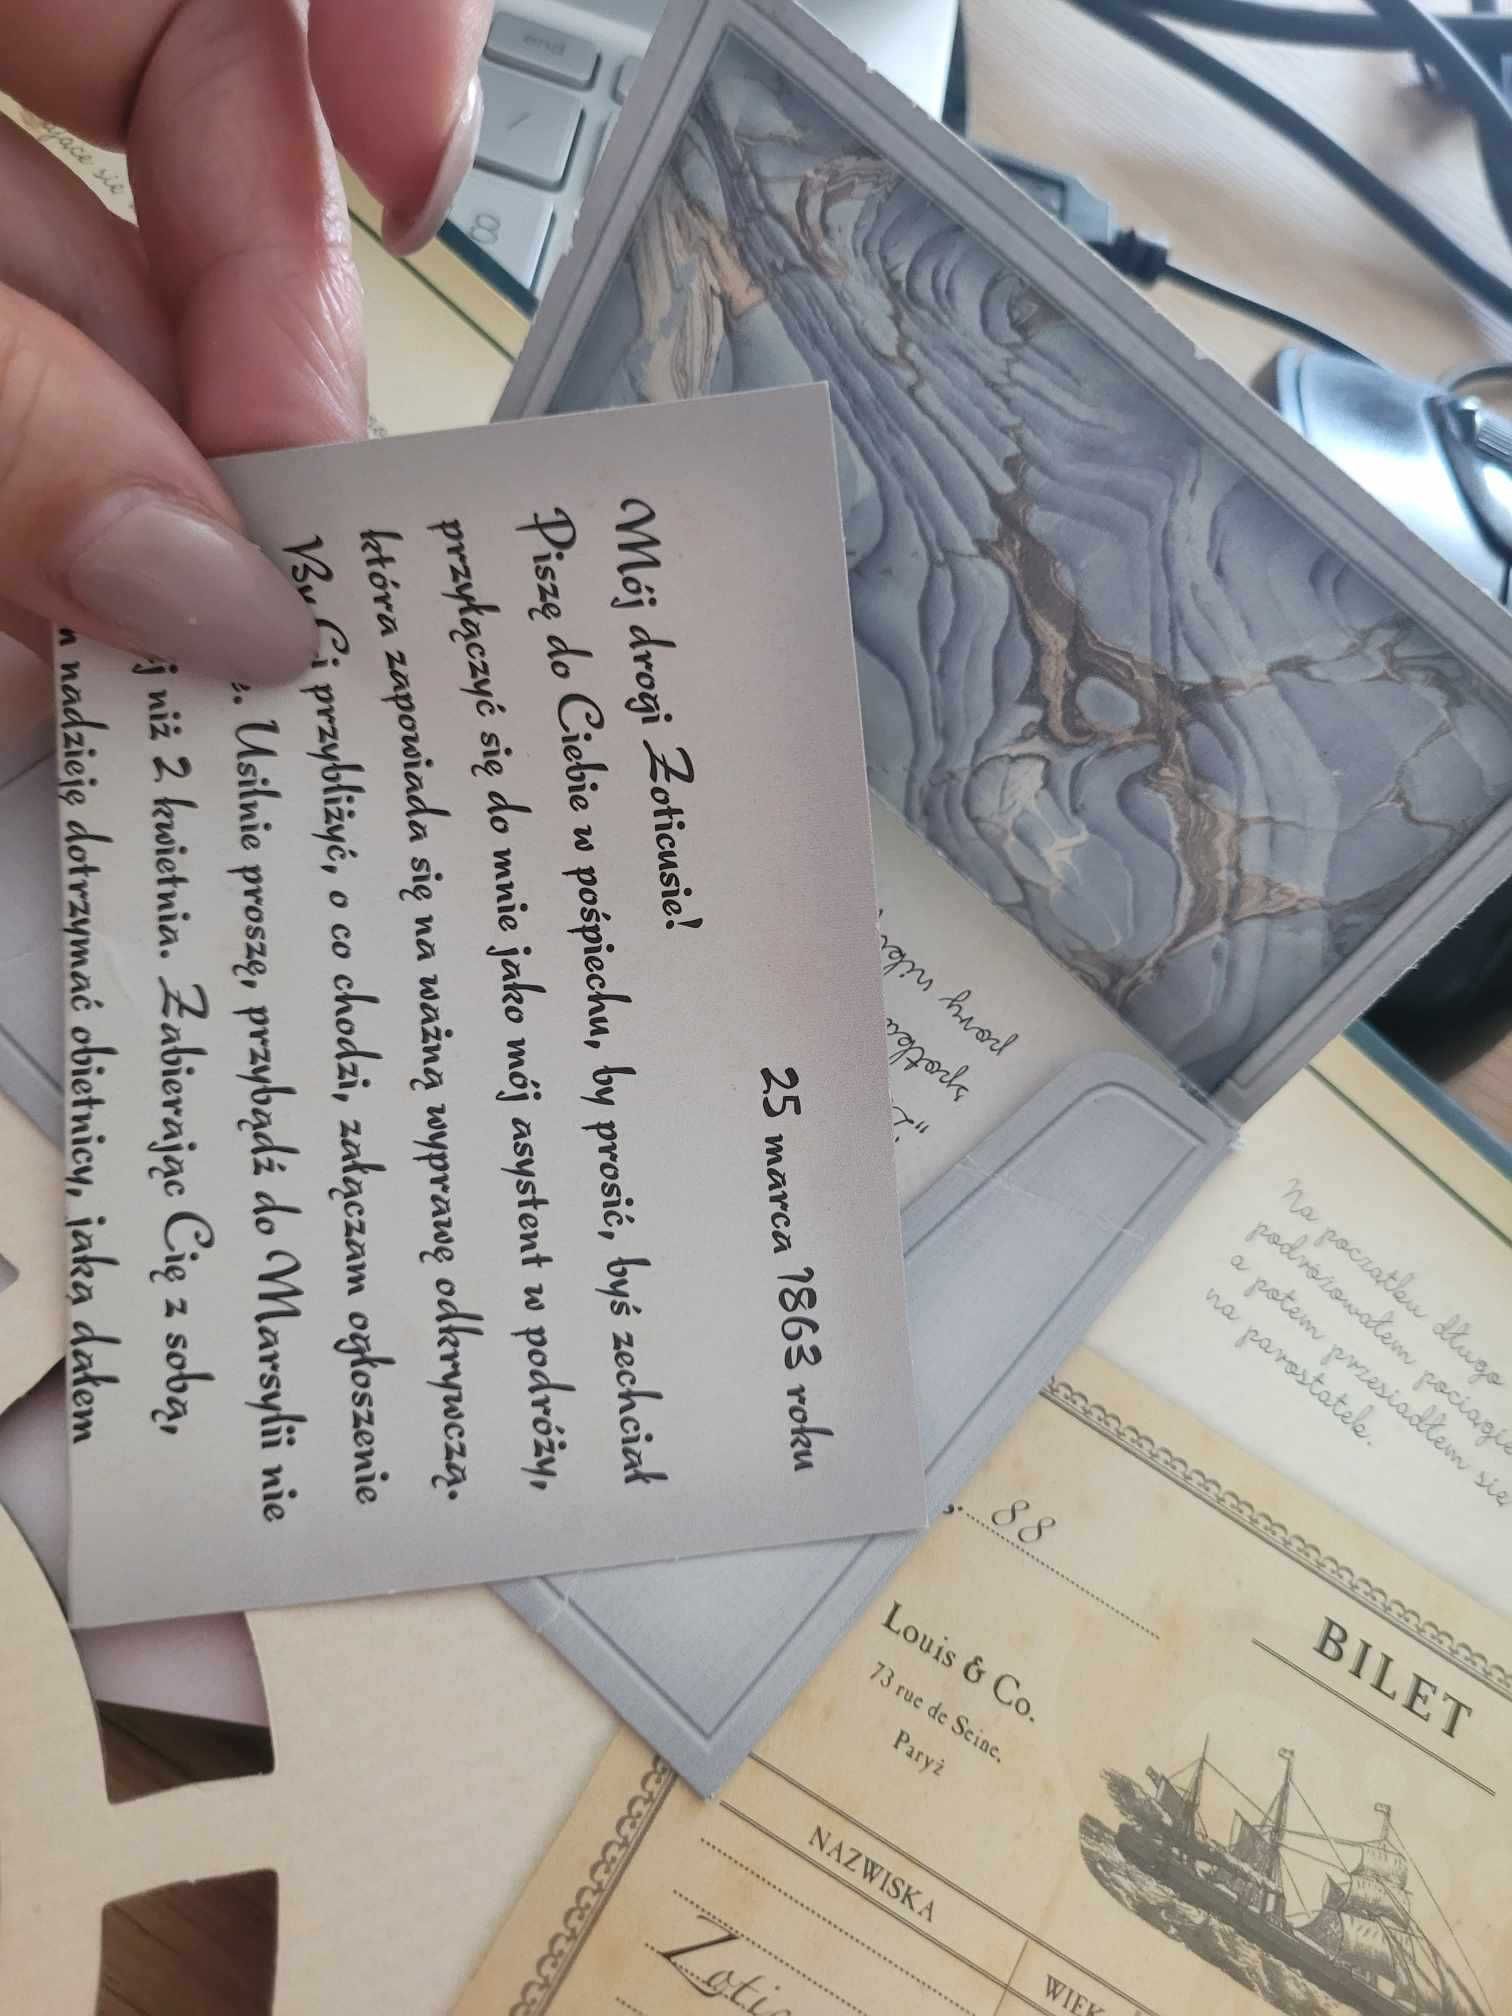 25 marca 1863 roku
Mój drogi Zoticusie!
Piszę do Ciebie w pośpiechu, by prosić, byś zechciał
przyłączyć się do mnie jako mój asystent w podróży,
która zapowiada się na ważną wyprawę odkrywczą.
By Ci przybliżyć, o co chodzi, załączam ogłoszenie
Usilnie proszę, przybądź do Marsylii nie
niż 2 kwietnia. Zabierając Cię z sobą,
nadzieję dotrzymać obietnicy, jaką dałem
Na początku długo
podróżowałem pociągi
a potem przesiadłem się
na parostatek.
88
BILET
Louis & Co.
73 rue de Seine,
Paryż
NAZWISKA
WIEK
spotka
pary
się
end
/
8